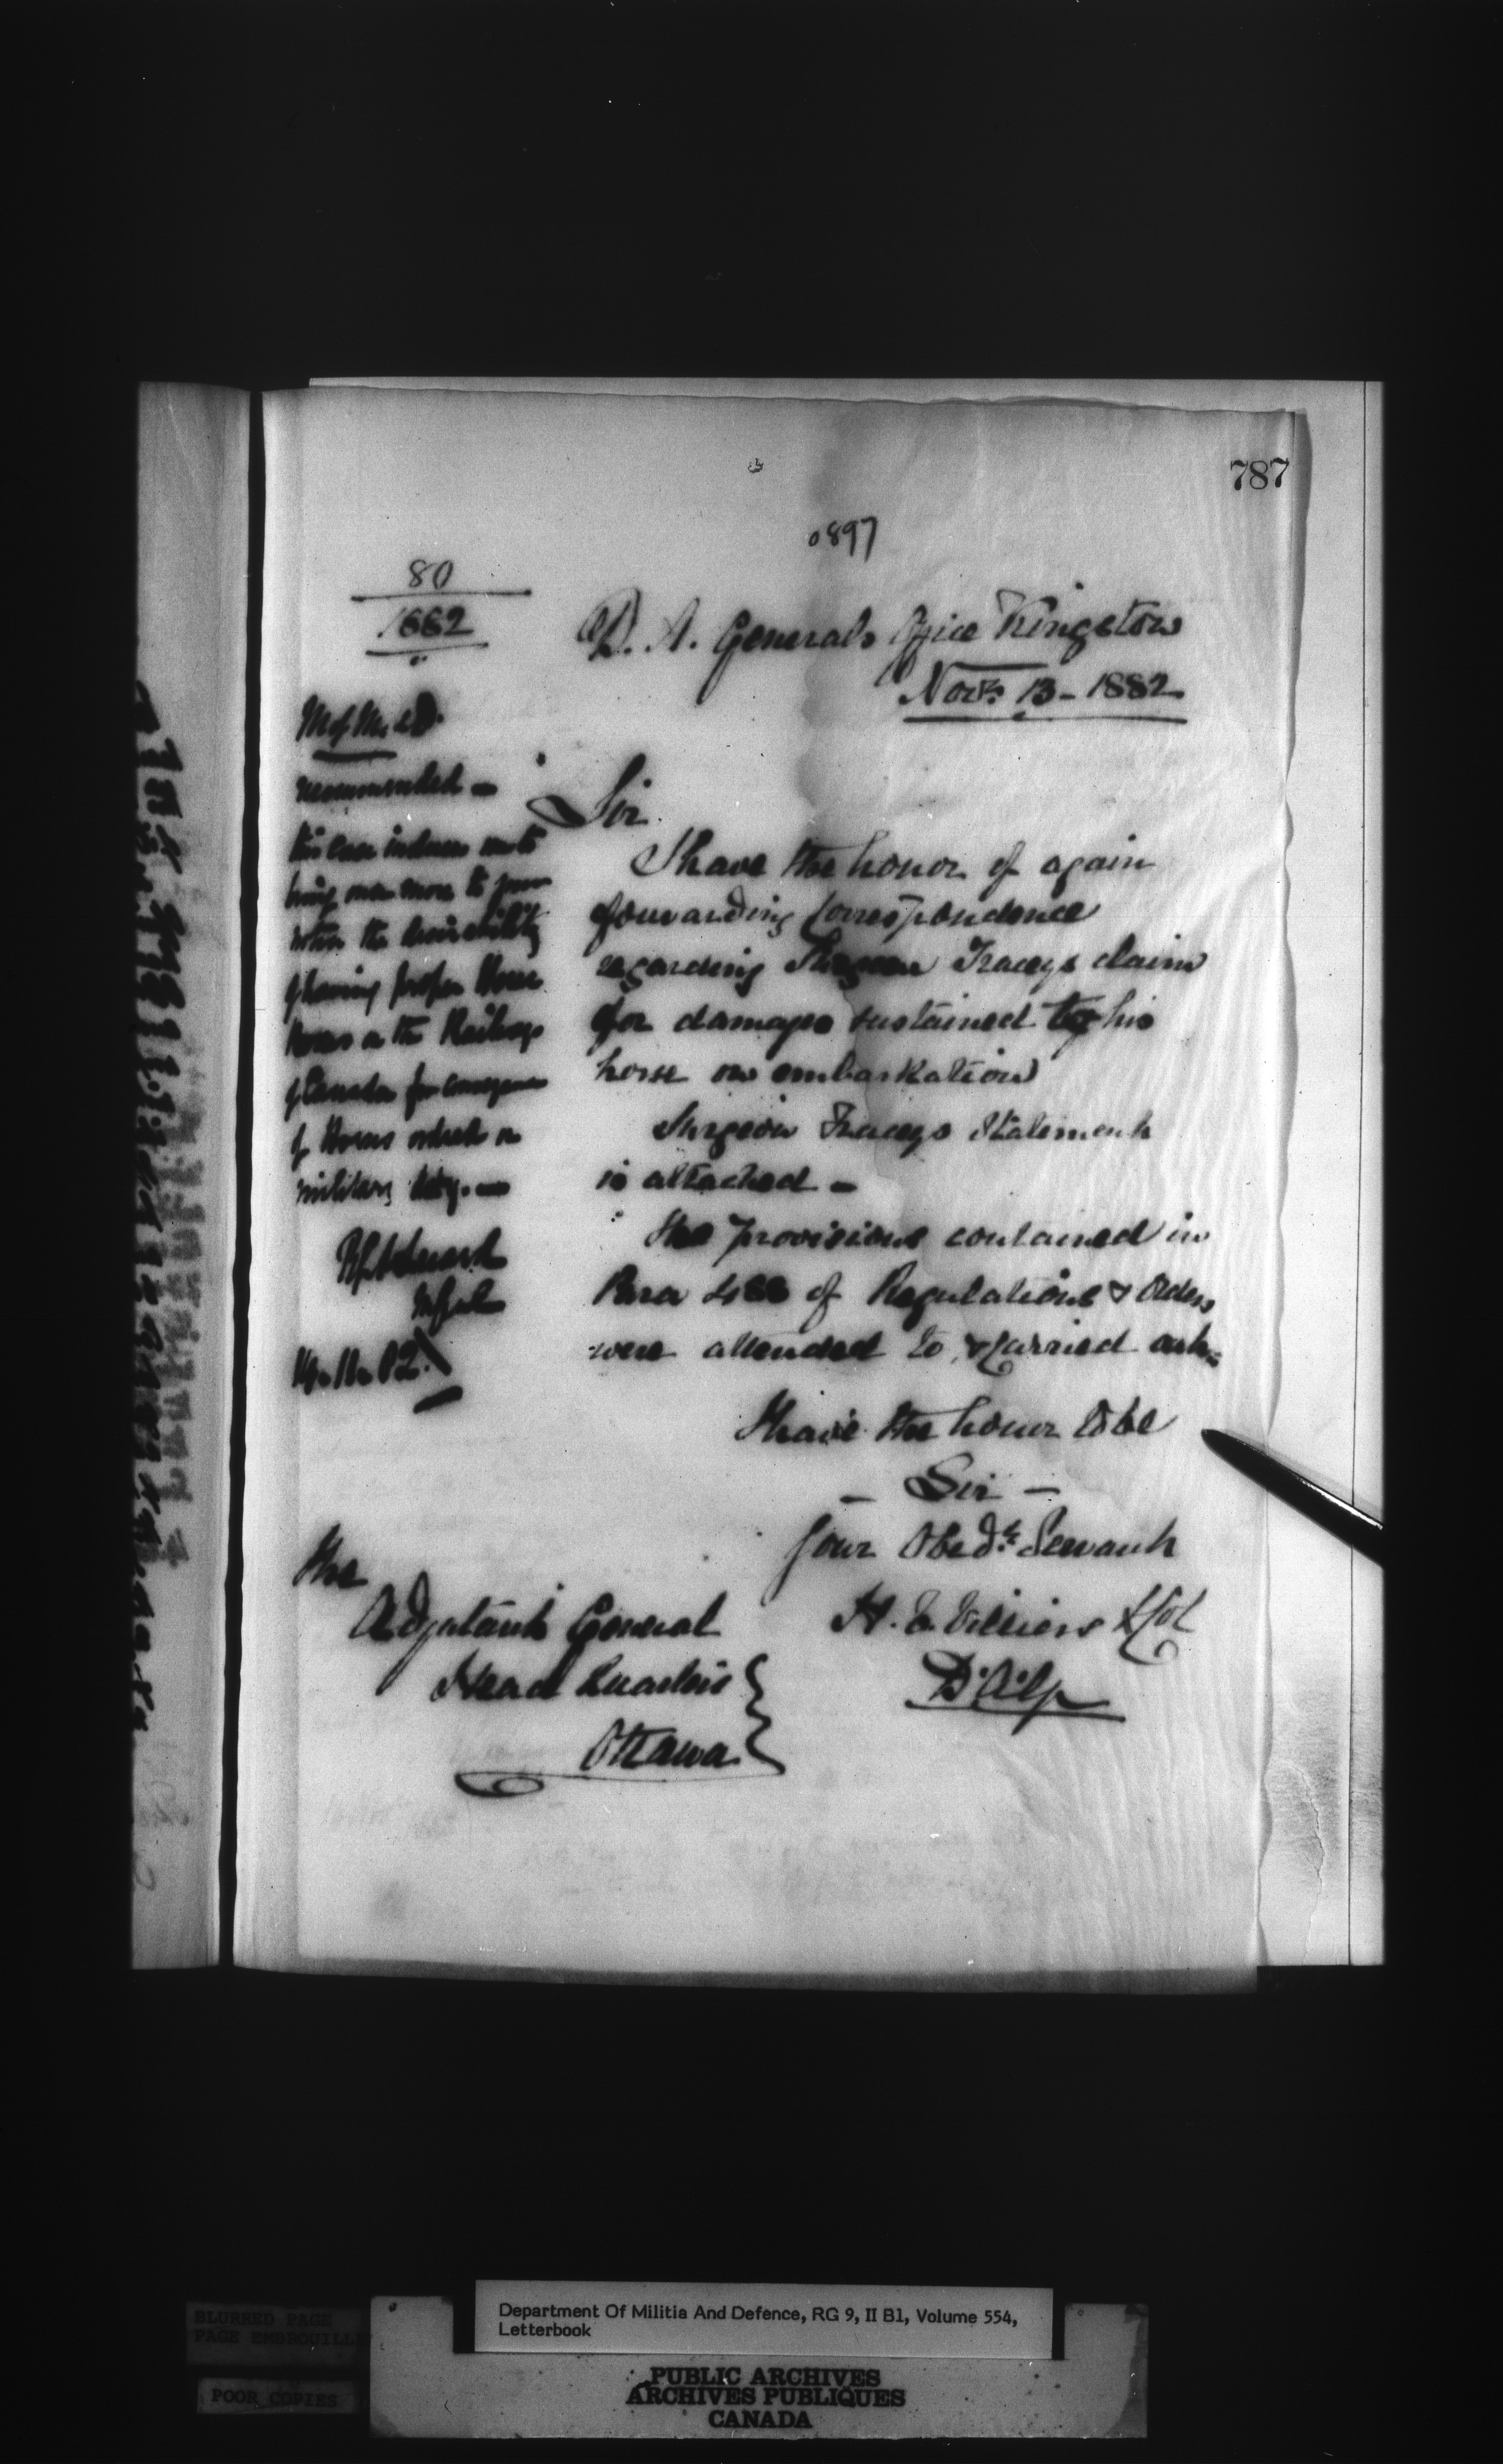 787
0897
80
1662
D. A. Generals Office Kingston
Novr. 13 - 1882
M of M. & D.
recommended -
this case induces me to
bring once more to your
notice the desirability
of having proper Horse
Boxes on the Railways
of Canada for conveyance
of Horses ordered on
military duty. -
Sir.
I have the honor of again
forwarding Correspondence
regarding Surgeon Traceys claim
for damages sustained to his
horse on embarkation
Surgeon Traceys Statement
is attached -
The provisions contained in
Para 488 of Regulations & Orders
were attended to & carried out.
I have the honor to be
- Sir -
Your Obedt. Servant
H. V. Villiers Lt Col
D.A.G.
The
Adjutant General
Head Quarters
Ottawa
BLURRED PAGE
PAGE EMBROUILLE
POOR COPIES
Department Of Militia And Defence, RG 9, II B1, Volume 554,
Letterbook
PUBLIC ARCHIVES
ARCHIVES PUBLIQUES
CANADA